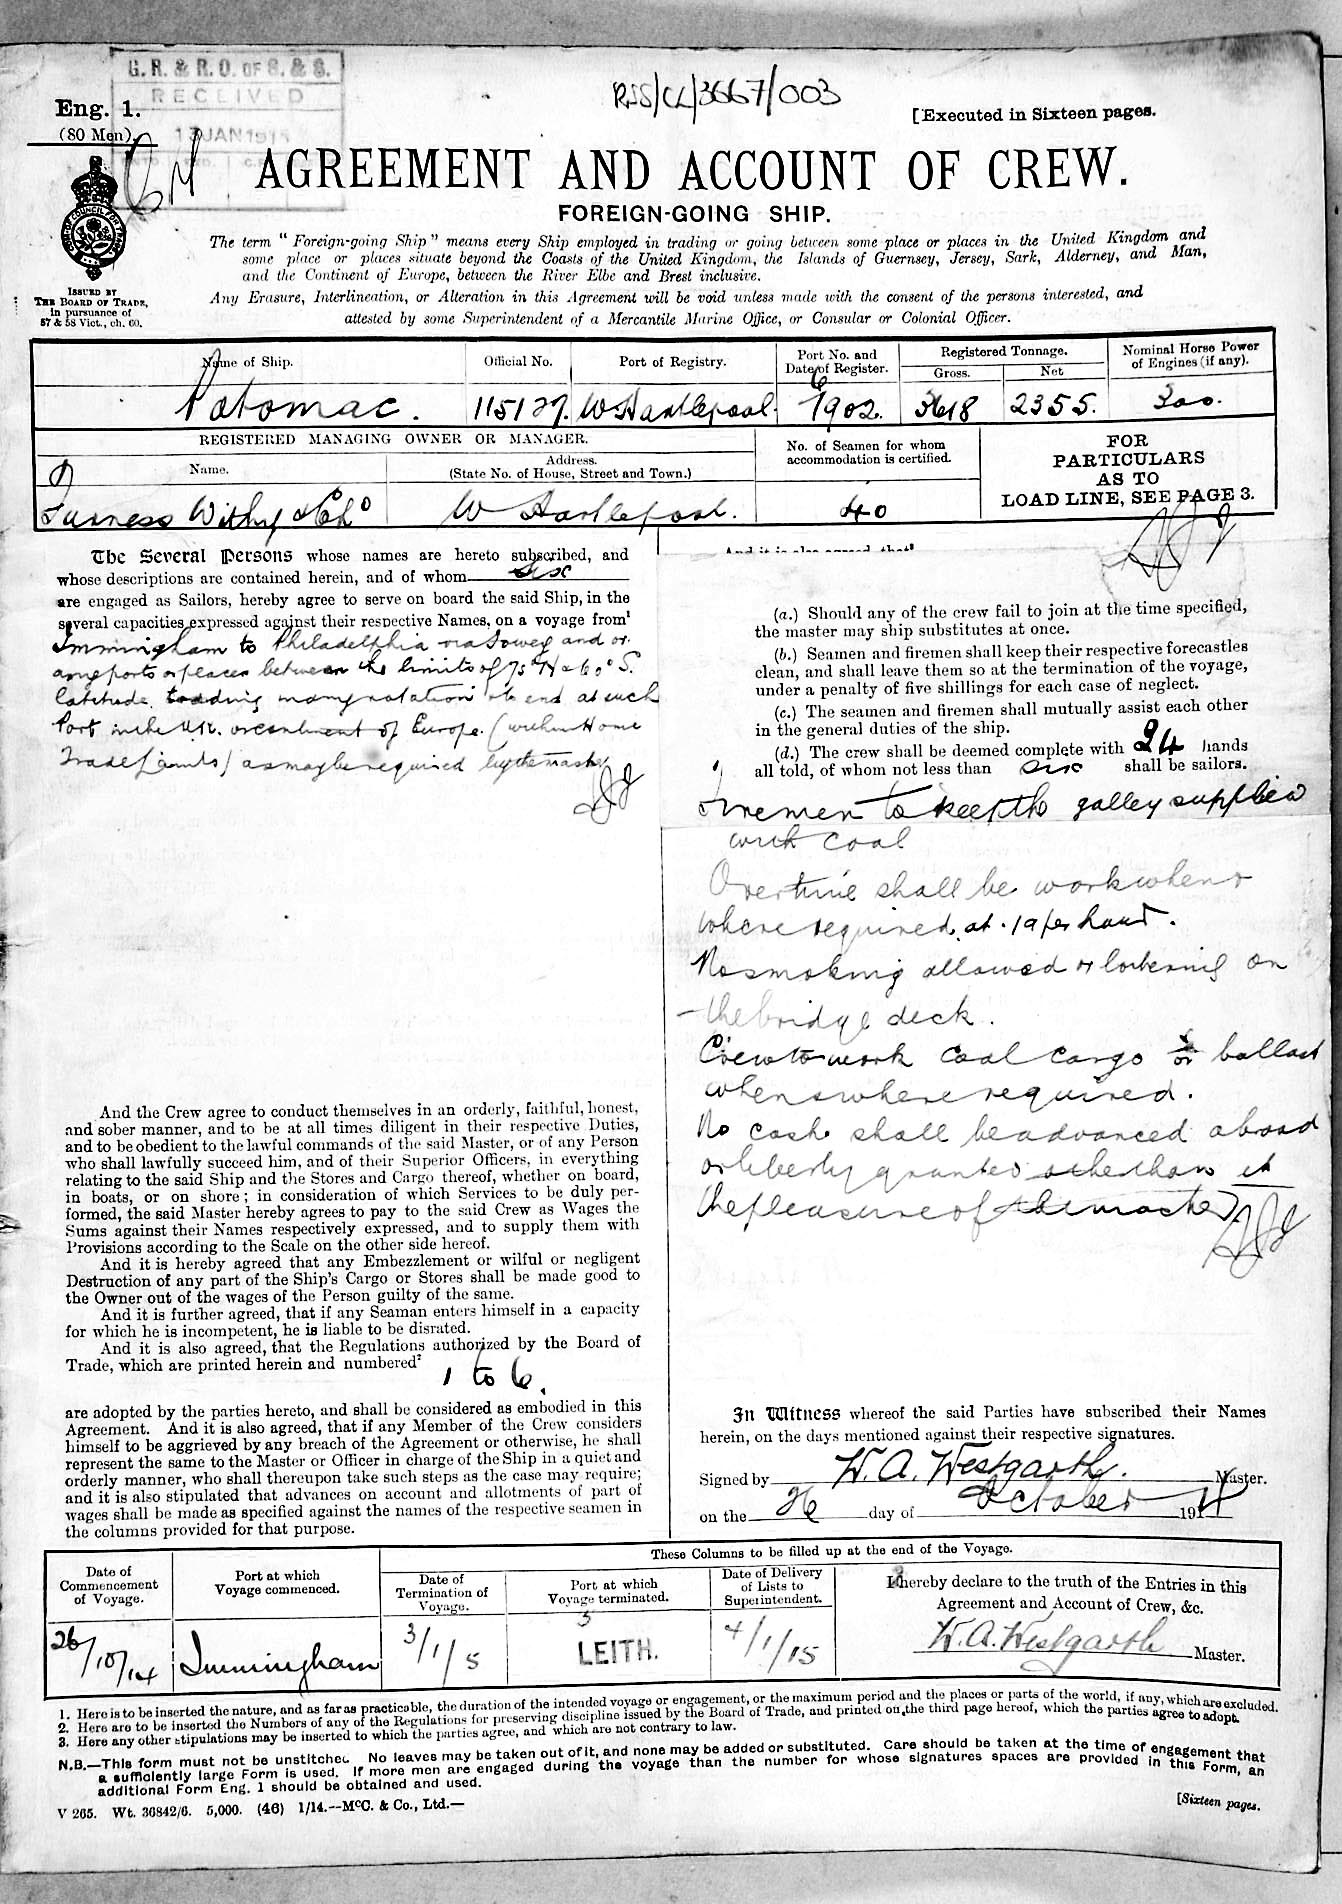 G. R. & R. O. OF S. & S.
RECEIVED
JAN 191
RSS/CL/3667/003
Eng. 1.
(80 Men)
[Executed in Sixteen pages.
AGREEMENT AND ACCOUNT OF CREW.
FOREIGN-GOING SHIP.
The term "Foreign-going Ship" means every Ship employed in trading or going between some place or places in the United Kingdom and
some place or places situate beyond the Coasts of the United Kingdom, the Islands of Guernsey, Jersey, Sark, Alderney, and Man,
and the Continent of Europe, between the River Elbe and Brest inclusive.
Any Erasure, Interlineation, or Alteration in this Agreement will be void unless made with the consent of the persons interested, and
attested by some Superintendent of a Mercantile Marine Office, or Consular or Colonial Officer.
ISSUED BY
THE BOARD OF TRADE,
in pursuance of
57 & 58 Vict., ch. 60.
Name of Ship.
Official No.
Port of Registry.
Port No. and
Date of Register.
Registered Tonnage.
Gross.
Net
Nominal Horse Power
of Engines (if any).
Potomac.
115127.
W Hartlepool.
6/1902.
3618
2355.
300.
REGISTERED MANAGING OWNER OR MANAGER.
Name.
Address.
(State No. of House, Street and Town.)
No. of Seamen for whom
accommodation is certified.
FOR
PARTICULARS
AS TO
LOAD LINE, SEE PAGE 3.
Furness Withy & Co Ld
W Hartlepool.
40
The Several Persons whose names are hereto subscribed, and
whose descriptions are contained herein, and of whom six
are engaged as Sailors, hereby agree to serve on board the said Ship, in the
several capacities expressed against their respective Names, on a voyage from¹
Immingham to Philadelphia via Fowey and or
any ports or places between the limits of 75° N & 60° S.
latitude trading in any rotation to end at such
Port in the U.K. or continent of Europe (within Home
Trade Limits) as may be required by the master
And the Crew agree to conduct themselves in an orderly, faithful, honest,
and sober manner, and to be at all times diligent in their respective Duties,
and to be obedient to the lawful commands of the said Master, or of any Person
who shall lawfully succeed him, and of their Superior Officers, in everything
relating to the said Ship and the Stores and Cargo thereof, whether on board,
in boats, or on shore; in consideration of which Services to be duly per-
formed, the said Master hereby agrees to pay to the said Crew as Wages the
Sums against their Names respectively expressed, and to supply them with
Provisions according to the Scale on the other side hereof.
And it is hereby agreed that any Embezzlement or wilful or negligent
Destruction of any part of the Ship's Cargo or Stores shall be made good to
the Owner out of the wages of the Person guilty of the same.
And it is further agreed, that if any Seaman enters himself in a capacity
for which he is incompetent, he is liable to be disrated.
And it is also agreed, that the Regulations authorized by the Board of
Trade, which are printed herein and numbered²
1 to 6.
are adopted by the parties hereto, and shall be considered as embodied in this
Agreement. And it is also agreed, that if any Member of the Crew considers
himself to be aggrieved by any breach of the Agreement or otherwise, he shall
represent the same to the Master or Officer in charge of the Ship in a quiet and
orderly manner, who shall thereupon take such steps as the case may require;
and it is also stipulated that advances on account and allotments of part of
wages shall be made as specified against the names of the respective seamen in
the columns provided for that purpose.
And it is also agreed, that³
(a.) Should any of the crew fail to join at the time specified,
the master may ship substitutes at once.
(b.) Seamen and firemen shall keep their respective forecastles
clean, and shall leave them so at the termination of the voyage,
under a penalty of five shillings for each case of neglect.
(c.) The seamen and firemen shall mutually assist each other
in the general duties of the ship.
(d.) The crew shall be deemed complete with 24 hands
all told, of whom not less than six shall be sailors.
Firemen to keep the galley supplied
with coal
Overtime shall be work when &
where required at -/9 per hour.
No smoking allowed or loitering on
the bridge deck.
Crew to work coal cargo or ballast
when & where required.
No cash shall be advanced abroad
or liberty granted other than at
the pleasure of the master
In Witness whereof the said Parties have subscribed their Names
herein, on the days mentioned against their respective signatures.
Signed by W. A. Westgarth. Master.
on the 26 day of October 1914
These Columns to be filled up at the end of the Voyage.
Date of
Commencement
of Voyage.
Port at which
Voyage commenced.
Date of
Termination of
Voyage.
Port at which
Voyage terminated.
Date of Delivery
of Lists to
Superintendent.
I hereby declare to the truth of the Entries in this
Agreement and Account of Crew, &c.
26/10/14
Immingham
3/1/5
LEITH.
4/1/15
W. A. Westgarth Master.
1. Here is to be inserted the nature, and as far as practicable, the duration of the intended voyage or engagement, or the maximum period and the places or parts of the world, if any, which are excluded.
2. Here are to be inserted the Numbers of any of the Regulations for preserving discipline issued by the Board of Trade, and printed on the third page hereof, which the parties agree to adopt.
3. Here any other stipulations may be inserted to which the parties agree, and which are not contrary to law.
N.B.—This form must not be unstitched. No leaves may be taken out of it, and none may be added or substituted. Care should be taken at the time of engagement that
a sufficiently large Form is used. If more men are engaged during the voyage than the number for whose signatures spaces are provided in this Form, an
additional Form Eng. 1 should be obtained and used.
V 265. Wt. 36842/6. 5,000. (46) 1/14.--McC. & Co., Ltd.—
[Sixteen pages.